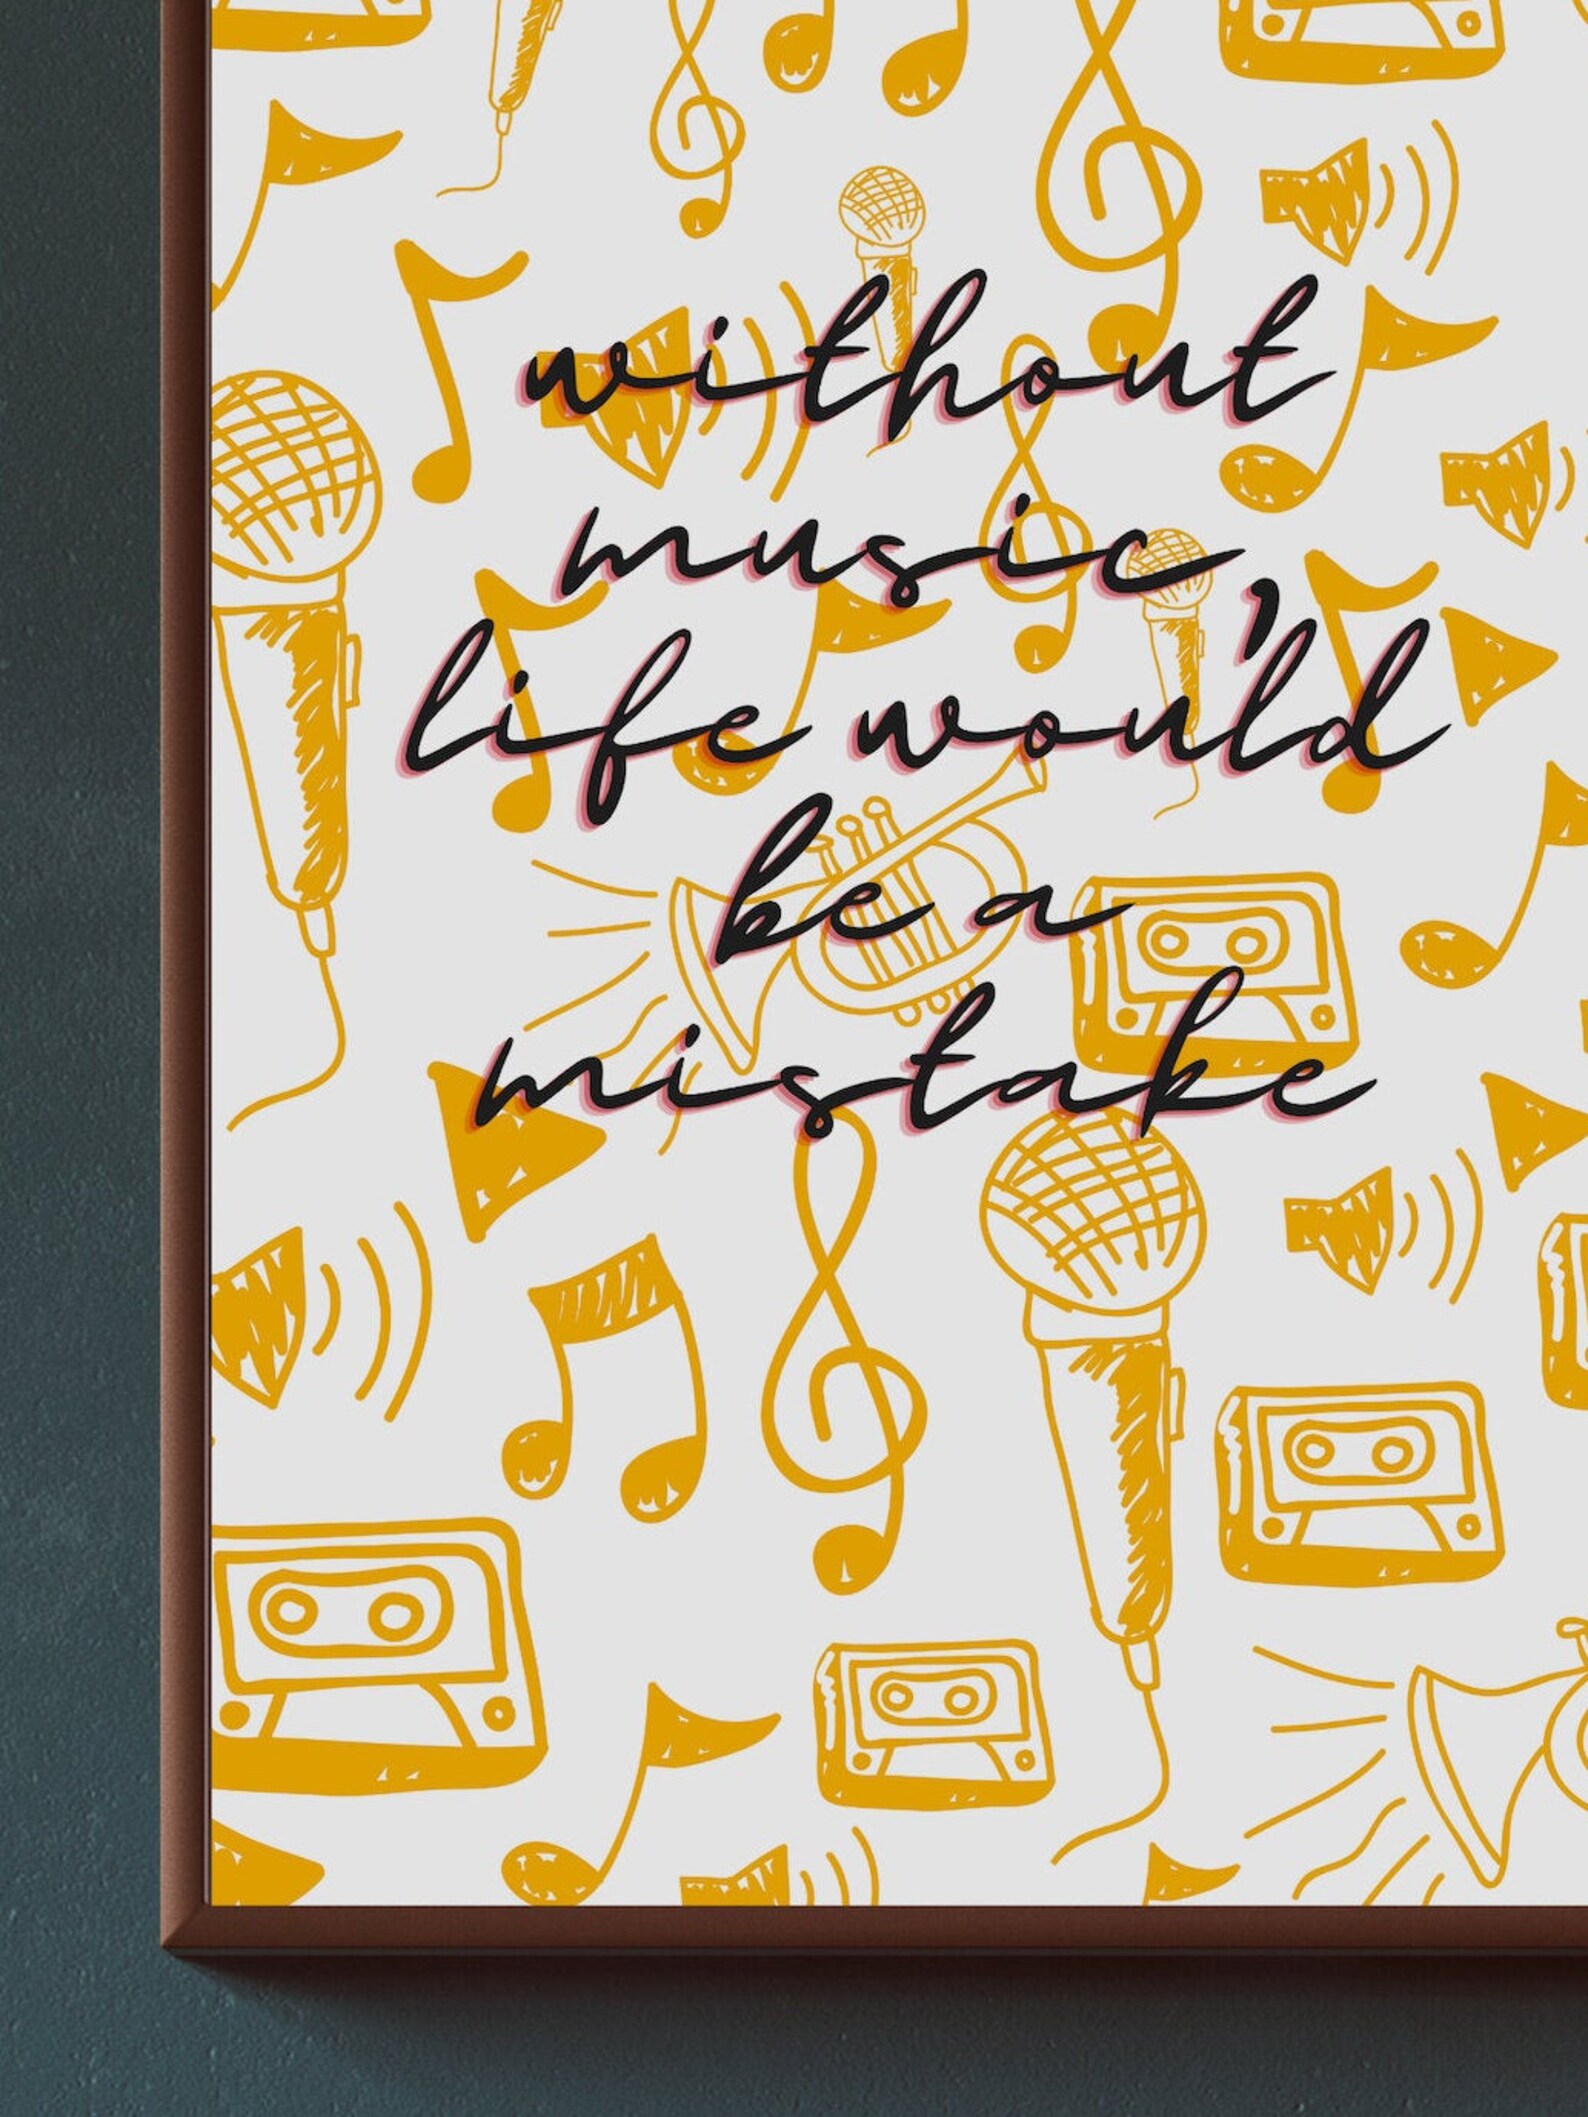 without
music,
life would
be a
mistake